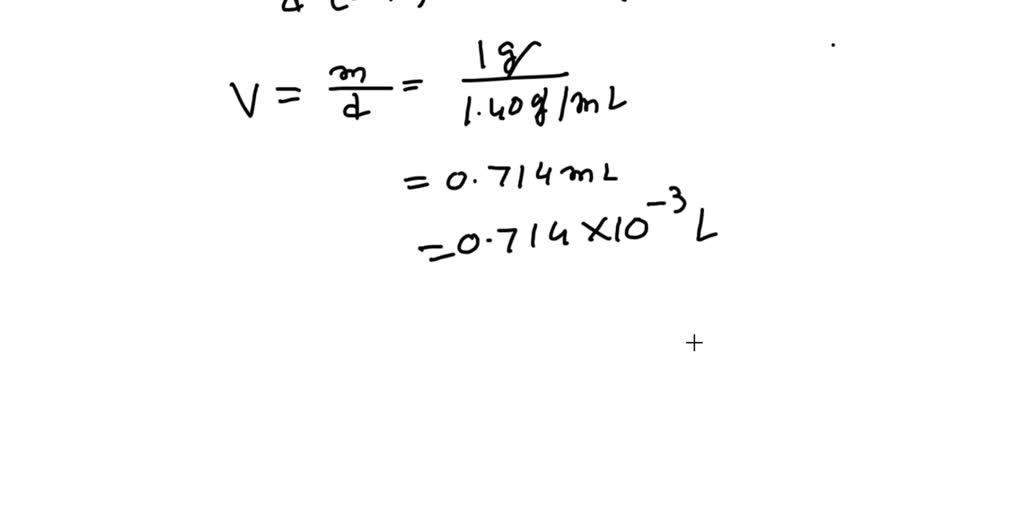 V = m/d = 1g/1.40g/mL
= 0.714 mL
= 0.714 × 10⁻³ L